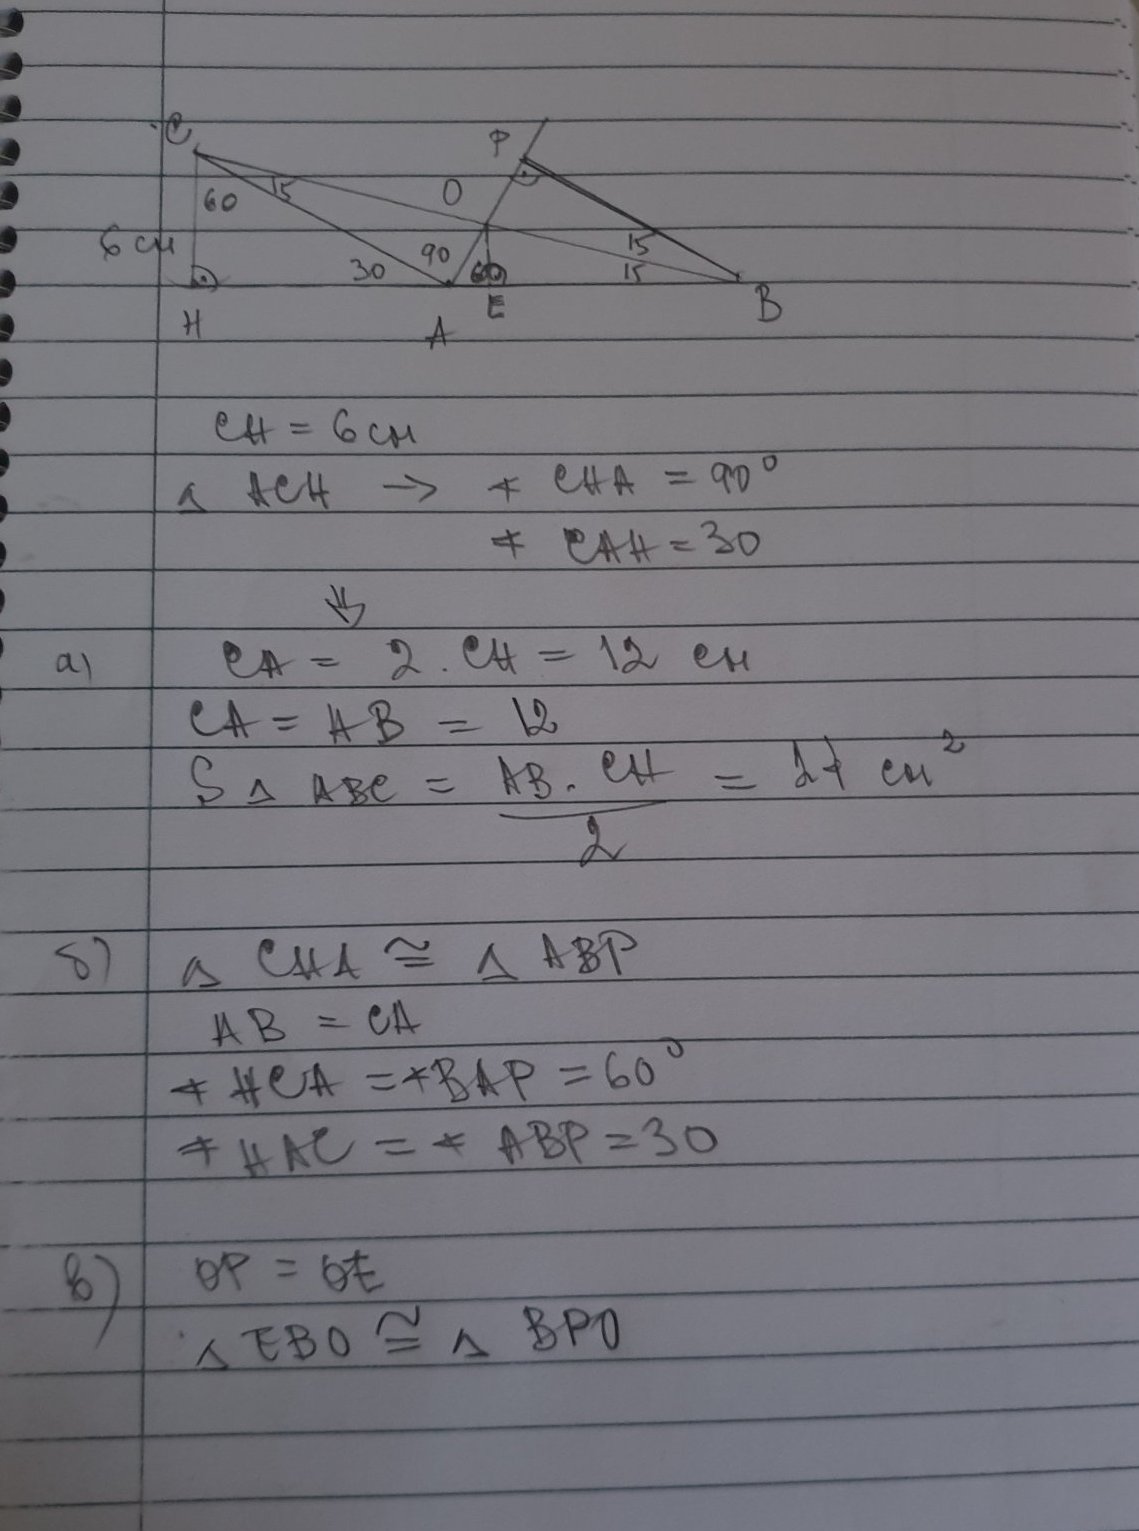 C
P
60
15
O
6 см
90
15
30
60
15
H
A
E
B
CH = 6 см
△ ACH → ∢ CHA = 90°
∢ CAH = 30
⇓
а) CA = 2 . CH = 12 см
CA = AB = 12
S △ ABC = AB . CH / 2 = 27 см²
б) △ CHA ≅ △ ABP
AB = CA
∢ HCA = ∢ BAP = 60°
∢ HAC = ∢ ABP = 30
в) OP = OE
△ EBO ≅ △ BPO